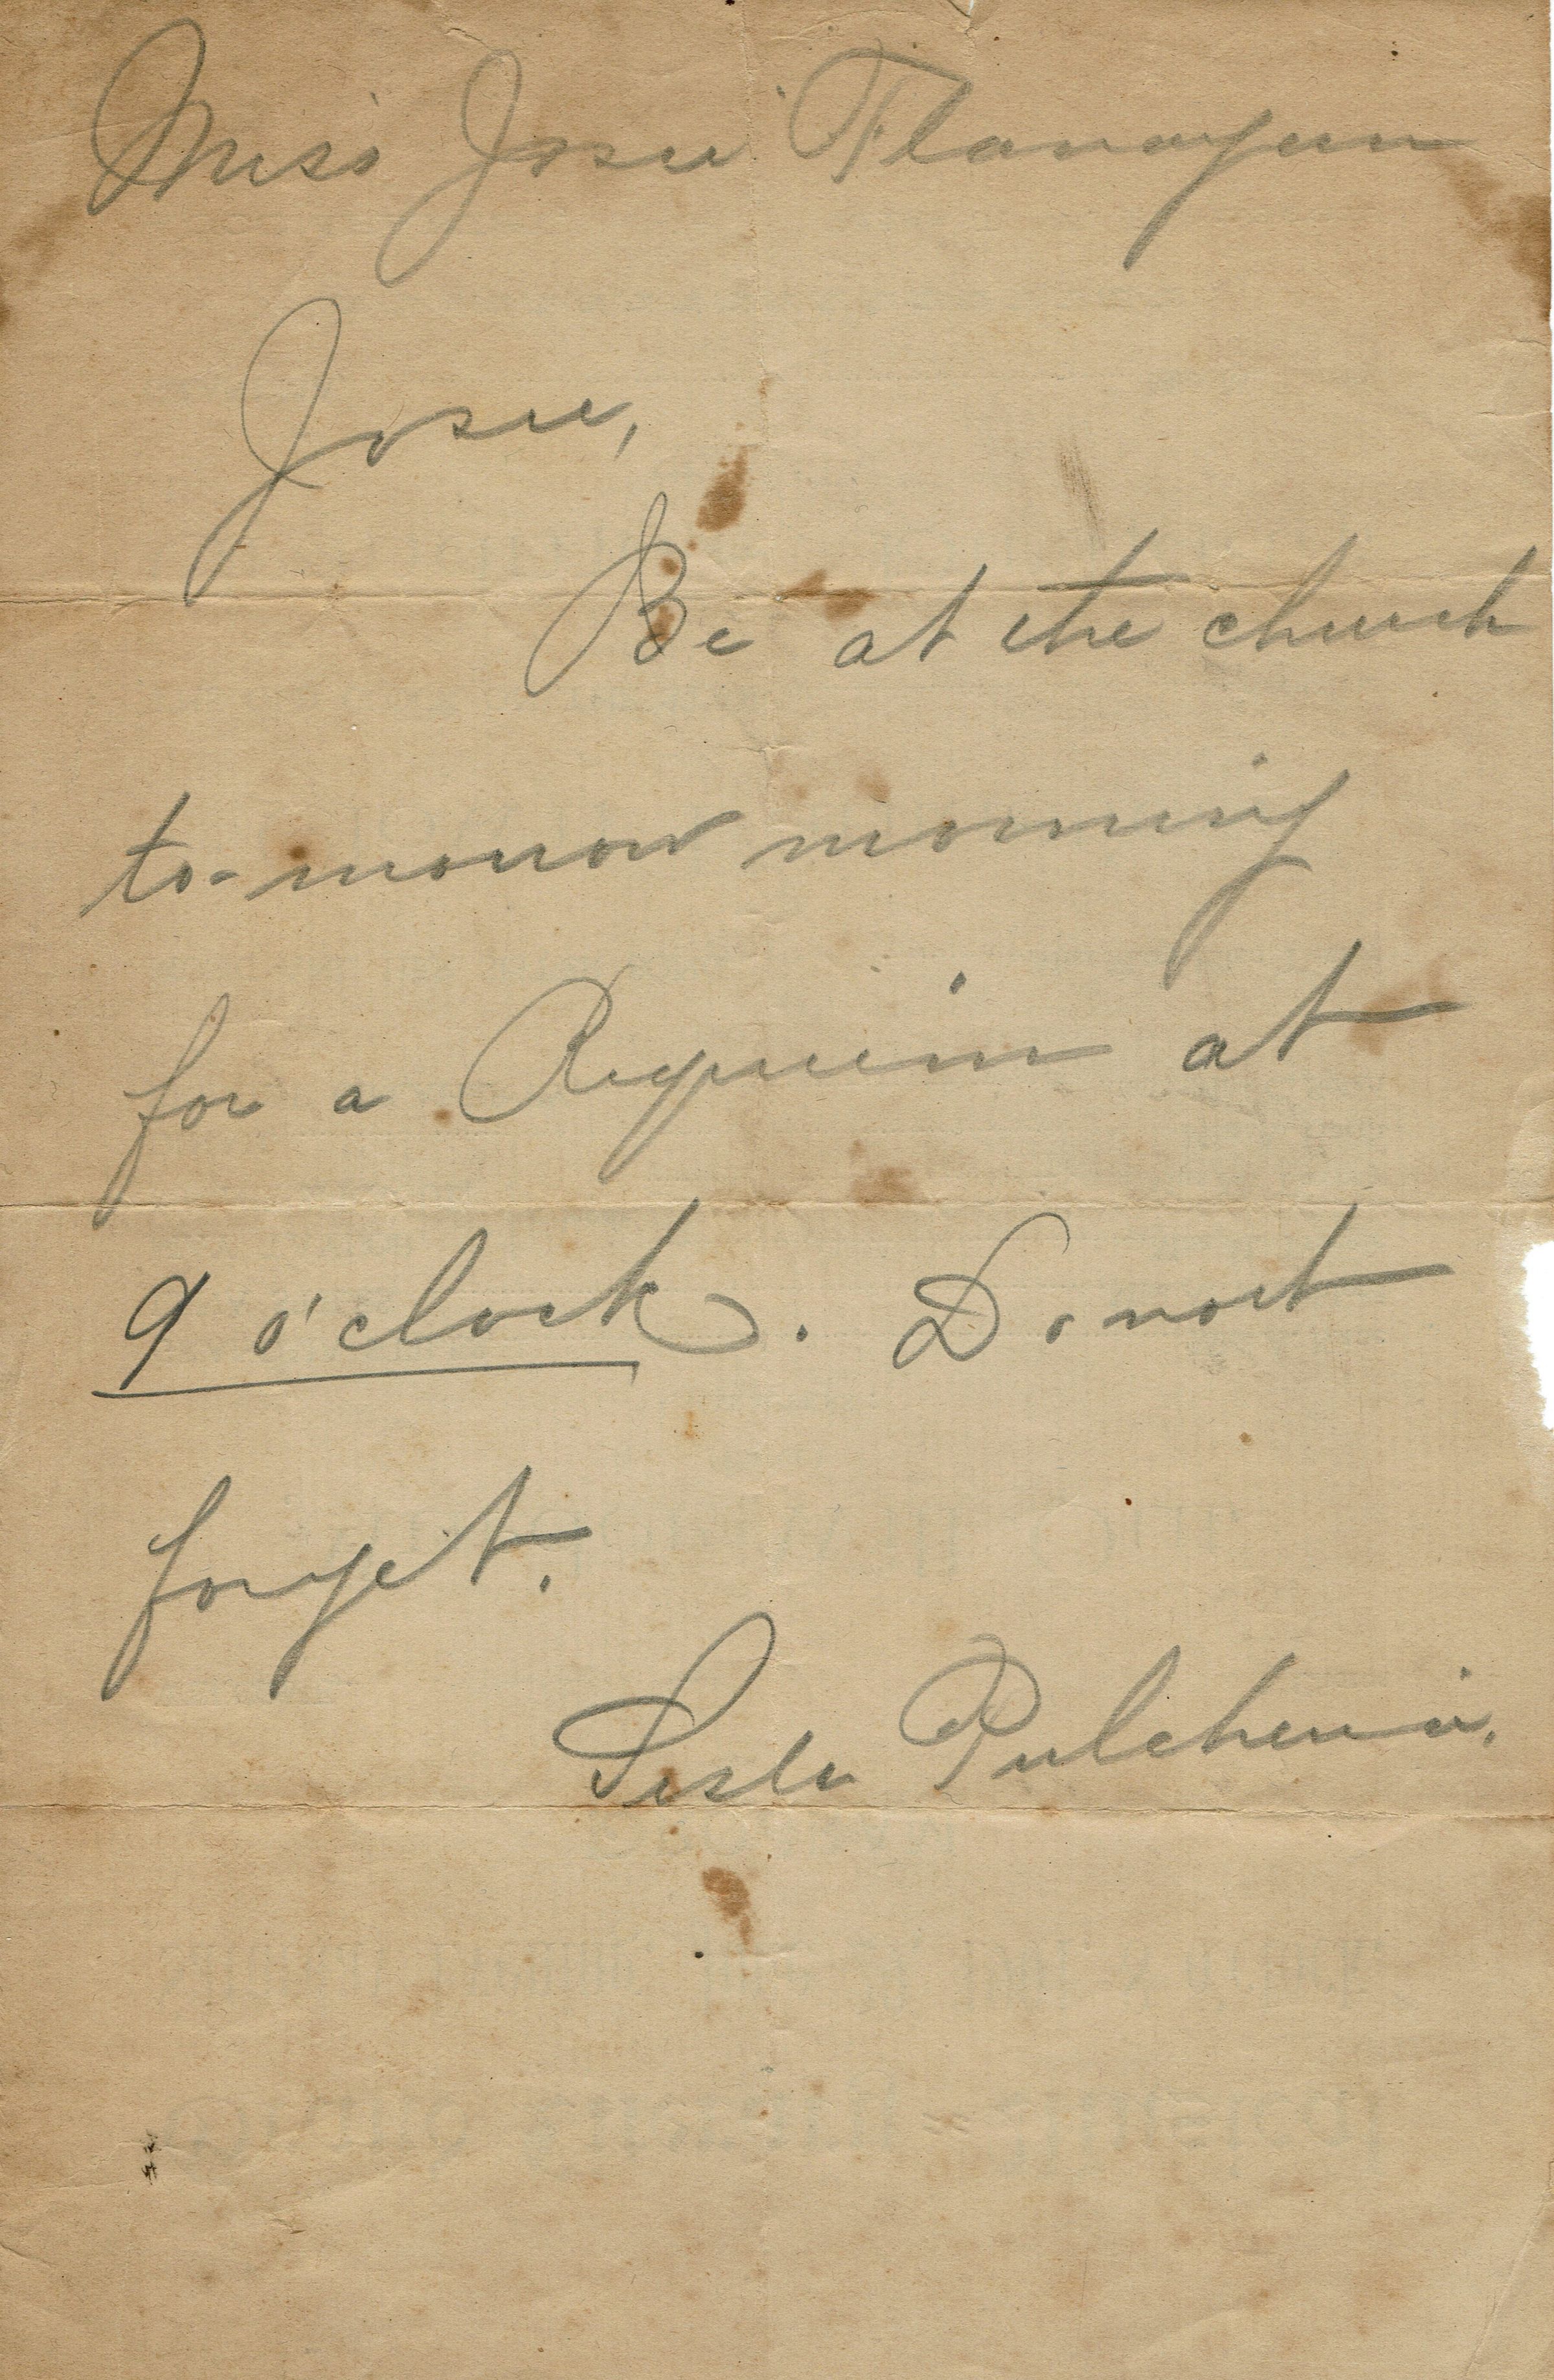 Miss Josie Flanagan
Josie,
Be at the church
to-morrow morning
for a Requiem at
9 o'clock. Do not
forget.
Pulcheria.